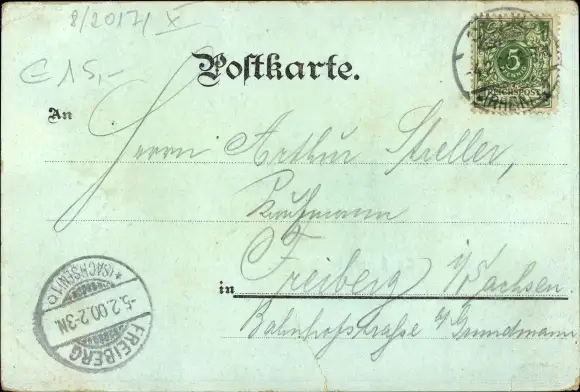 8/2017/ X
€ 15,-
5
REICHSPOST
Postkarte.
An
Herrn Arthur Streller,
Kaufmann
in Freiberg i/Sachsen.
Bahnhofstraße b/Grundmann
FREIBERG
-5.2.00.2-3N.
*(SACHSEN)1 b